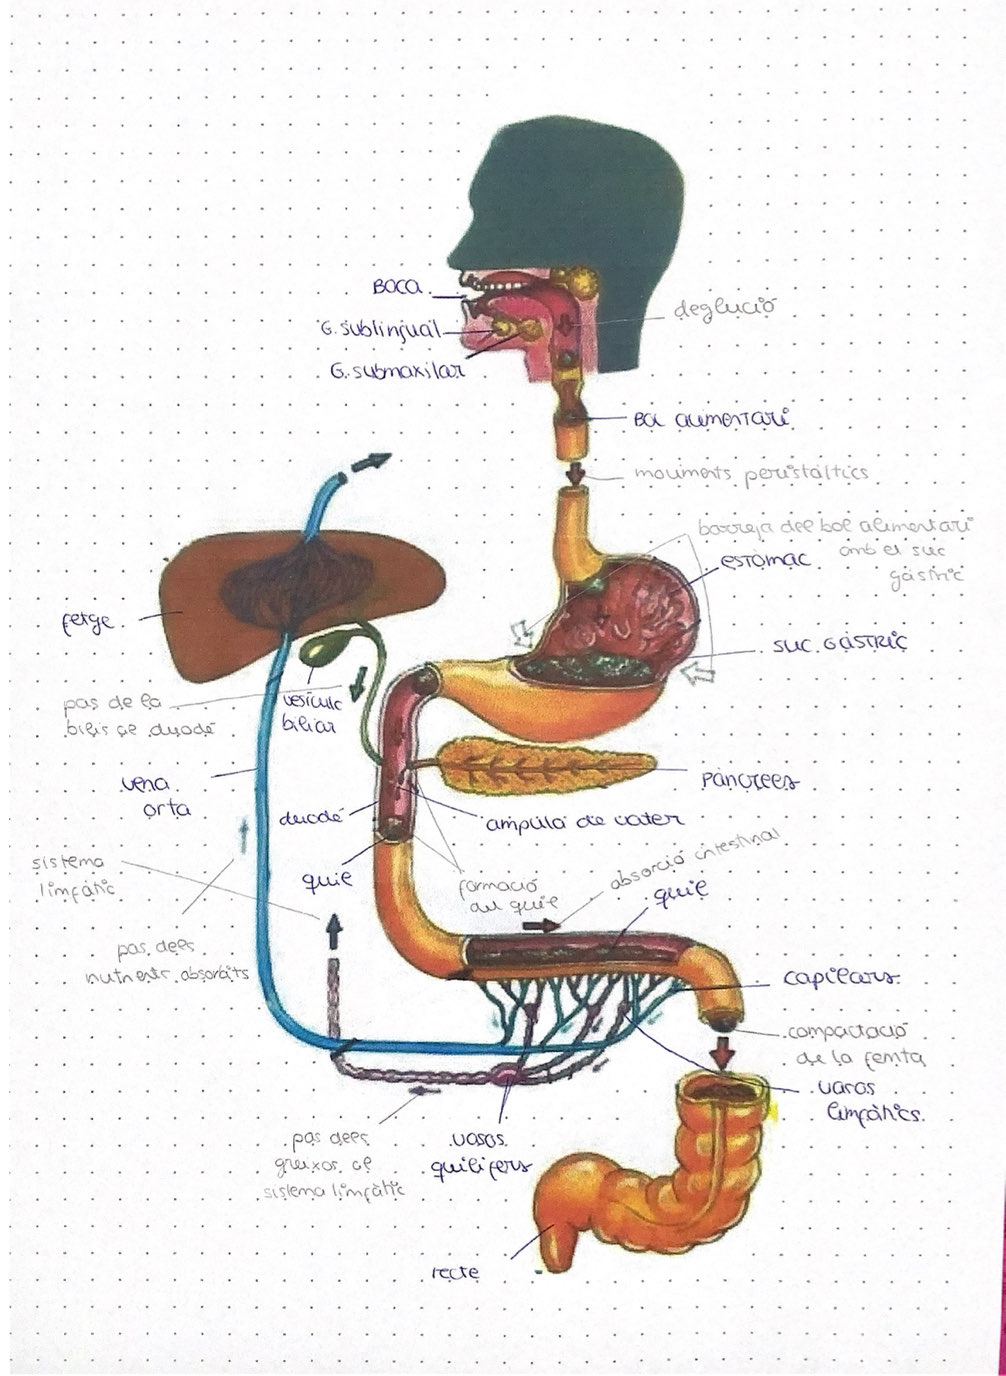 Boca
deglució
G. sublingual
G. submaxilar
Bol alimentari
moviments peristàltics
barreja del bol alimentari
amb el suc
gàstric
estomac
fetge
suc gàstric
pas de la
bilis al duodè
vesícula
biliar
vena
orta
pàncrees
duodè
ampula de vater
sistema
limfàtic
quil
formació
del quil
absorció intestinal
quil
pas dels
nutrients absorbits
capilars
compactació
de la femta
vasos
limfàtics.
pas dels
greixos al
sistema limfàtic
vasos
quilífers
recte